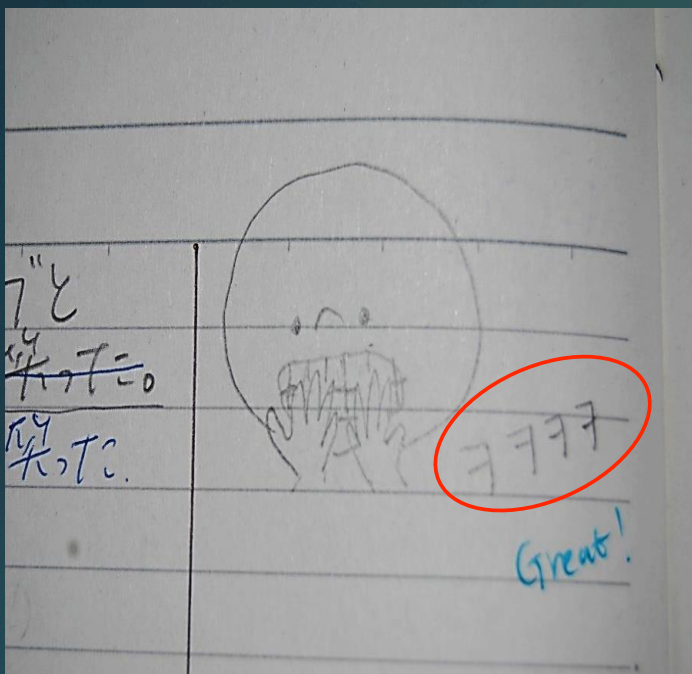 と
笑った。
笑った.
ㅋㅋㅋㅋ
Great!